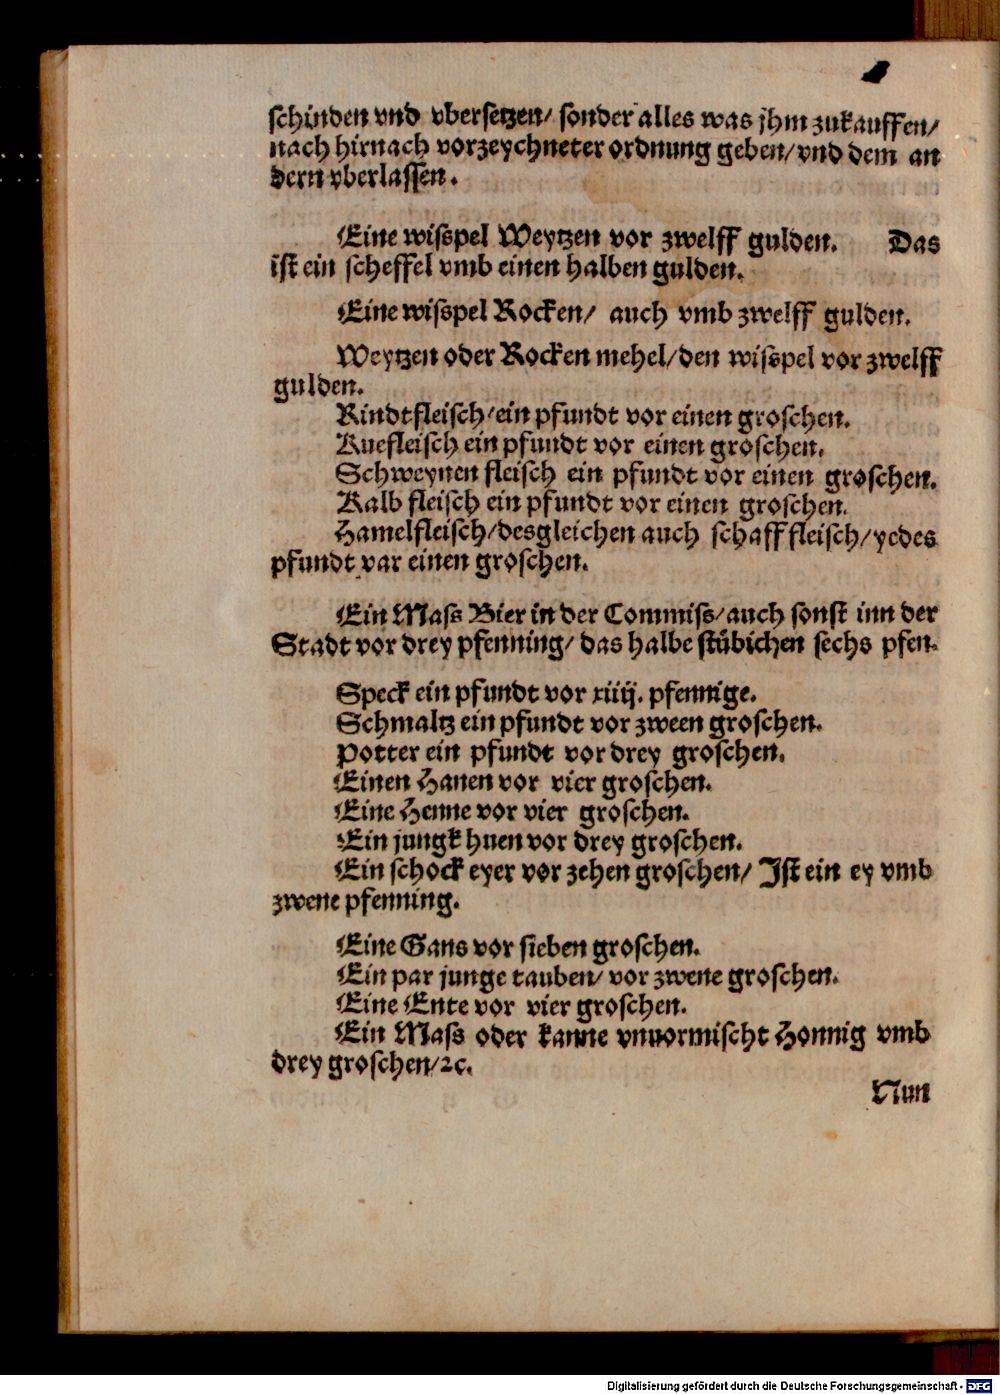 schinden vnd vbersetzen/ sonder alles was jhm zukauffen/
nach hirnach vorzeychneter ordnung geben/ vnd dem an
dern vberlassen.
Eine wißpel Weytzen vor zwelff gulden. Das
ist ein scheffel vmb einen halben gulden.
Eine wißpel Rocken/ auch vmb zwelff gulden.
Weytzen oder Rocken mehel/ den wißpel vor zwelff
gulden.
Rindtfleisch/ ein pfundt vor einen groschen.
Kuefleisch ein pfundt vor einen groschen.
Schweynen fleisch ein pfundt vor einen groschen.
Kalb fleisch ein pfundt vor einen groschen.
Hamelfleisch/ desgleichen auch schaff fleisch/ yedes
pfundt var einen groschen.
Ein Maß Bier in der Commiß/ auch sonst inn der
Stadt vor drey pfenning/ das halbe stübichen sechs pfen.
Speck ein pfundt vor xiiij. pfennige.
Schmaltz ein pfundt vor zween groschen.
Potter ein pfundt vor drey groschen.
Einen Hanen vor vier groschen.
Eine Henne vor vier groschen.
Ein jungk huen vor drey groschen.
Ein schock eyer vor zehen groschen/ Ist ein ey vmb
zwene pfenning.
Eine Gans vor sieben groschen.
Ein par junge tauben/ vor zwene groschen.
Eine Ente vor vier groschen.
Ein Maß oder kanne vnuormischt Honnig vmb
drey groschen/ ꝛc.
Nun
Digitalisierung gefördert durch die Deutsche Forschungsgemeinschaft - DFG